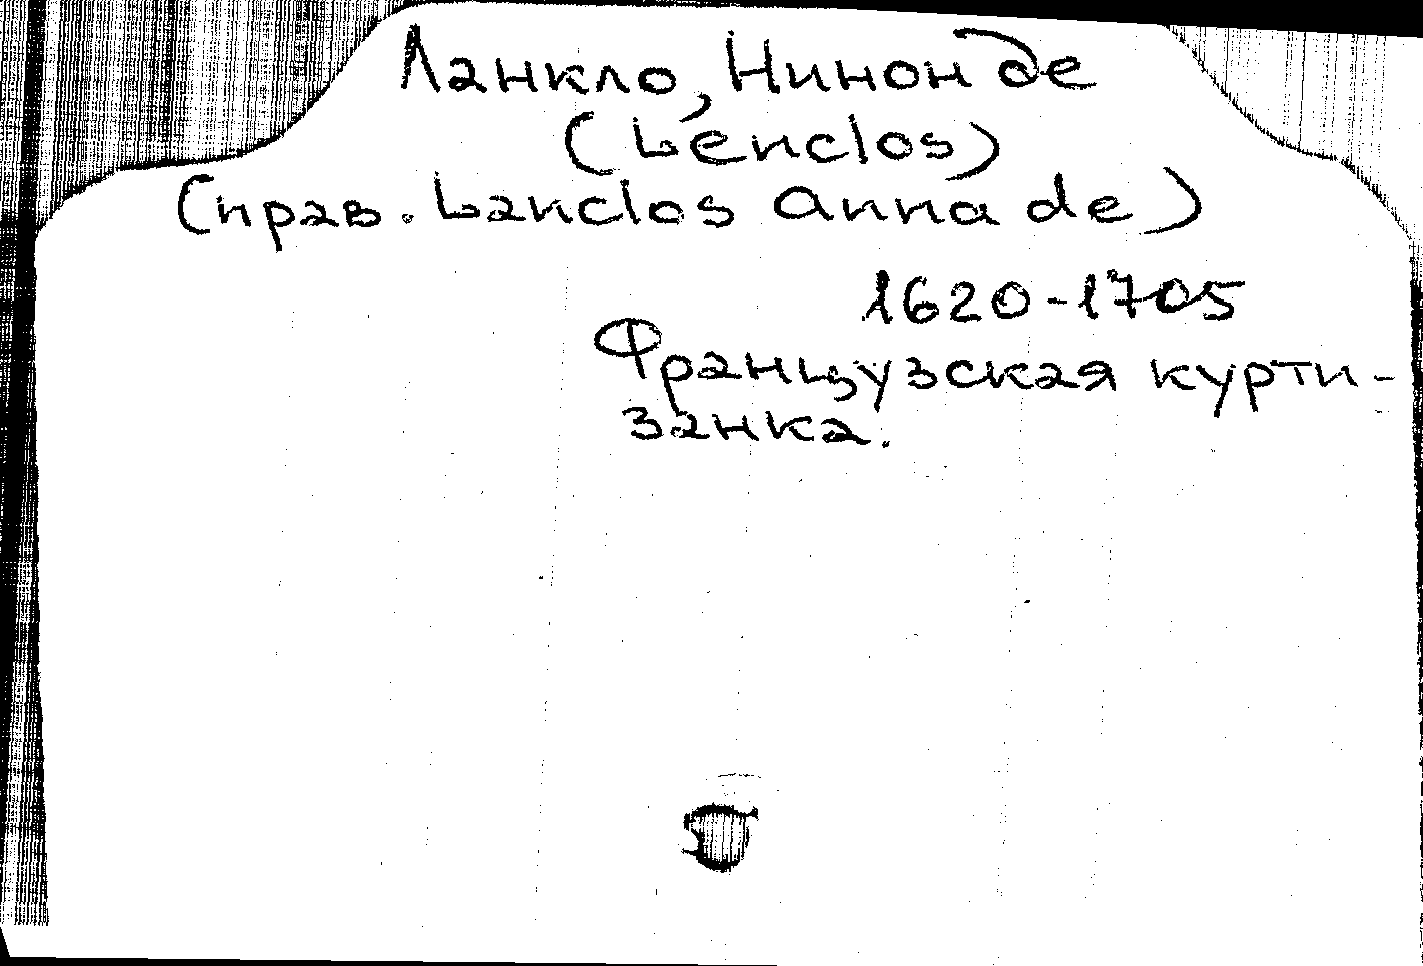 Ланкло, Нинон де
(Lenclos)
(прав. Lanclos Anna de)
1620-1705
Французская курти-
занка.